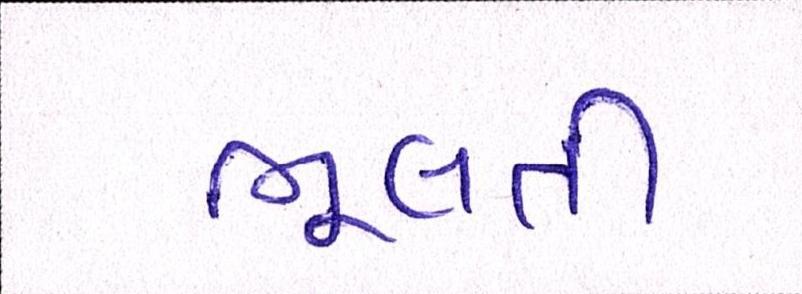 ભૂલતી